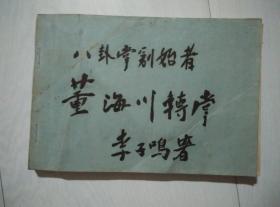 八卦掌创始者
董海川轉掌
李子鸣署